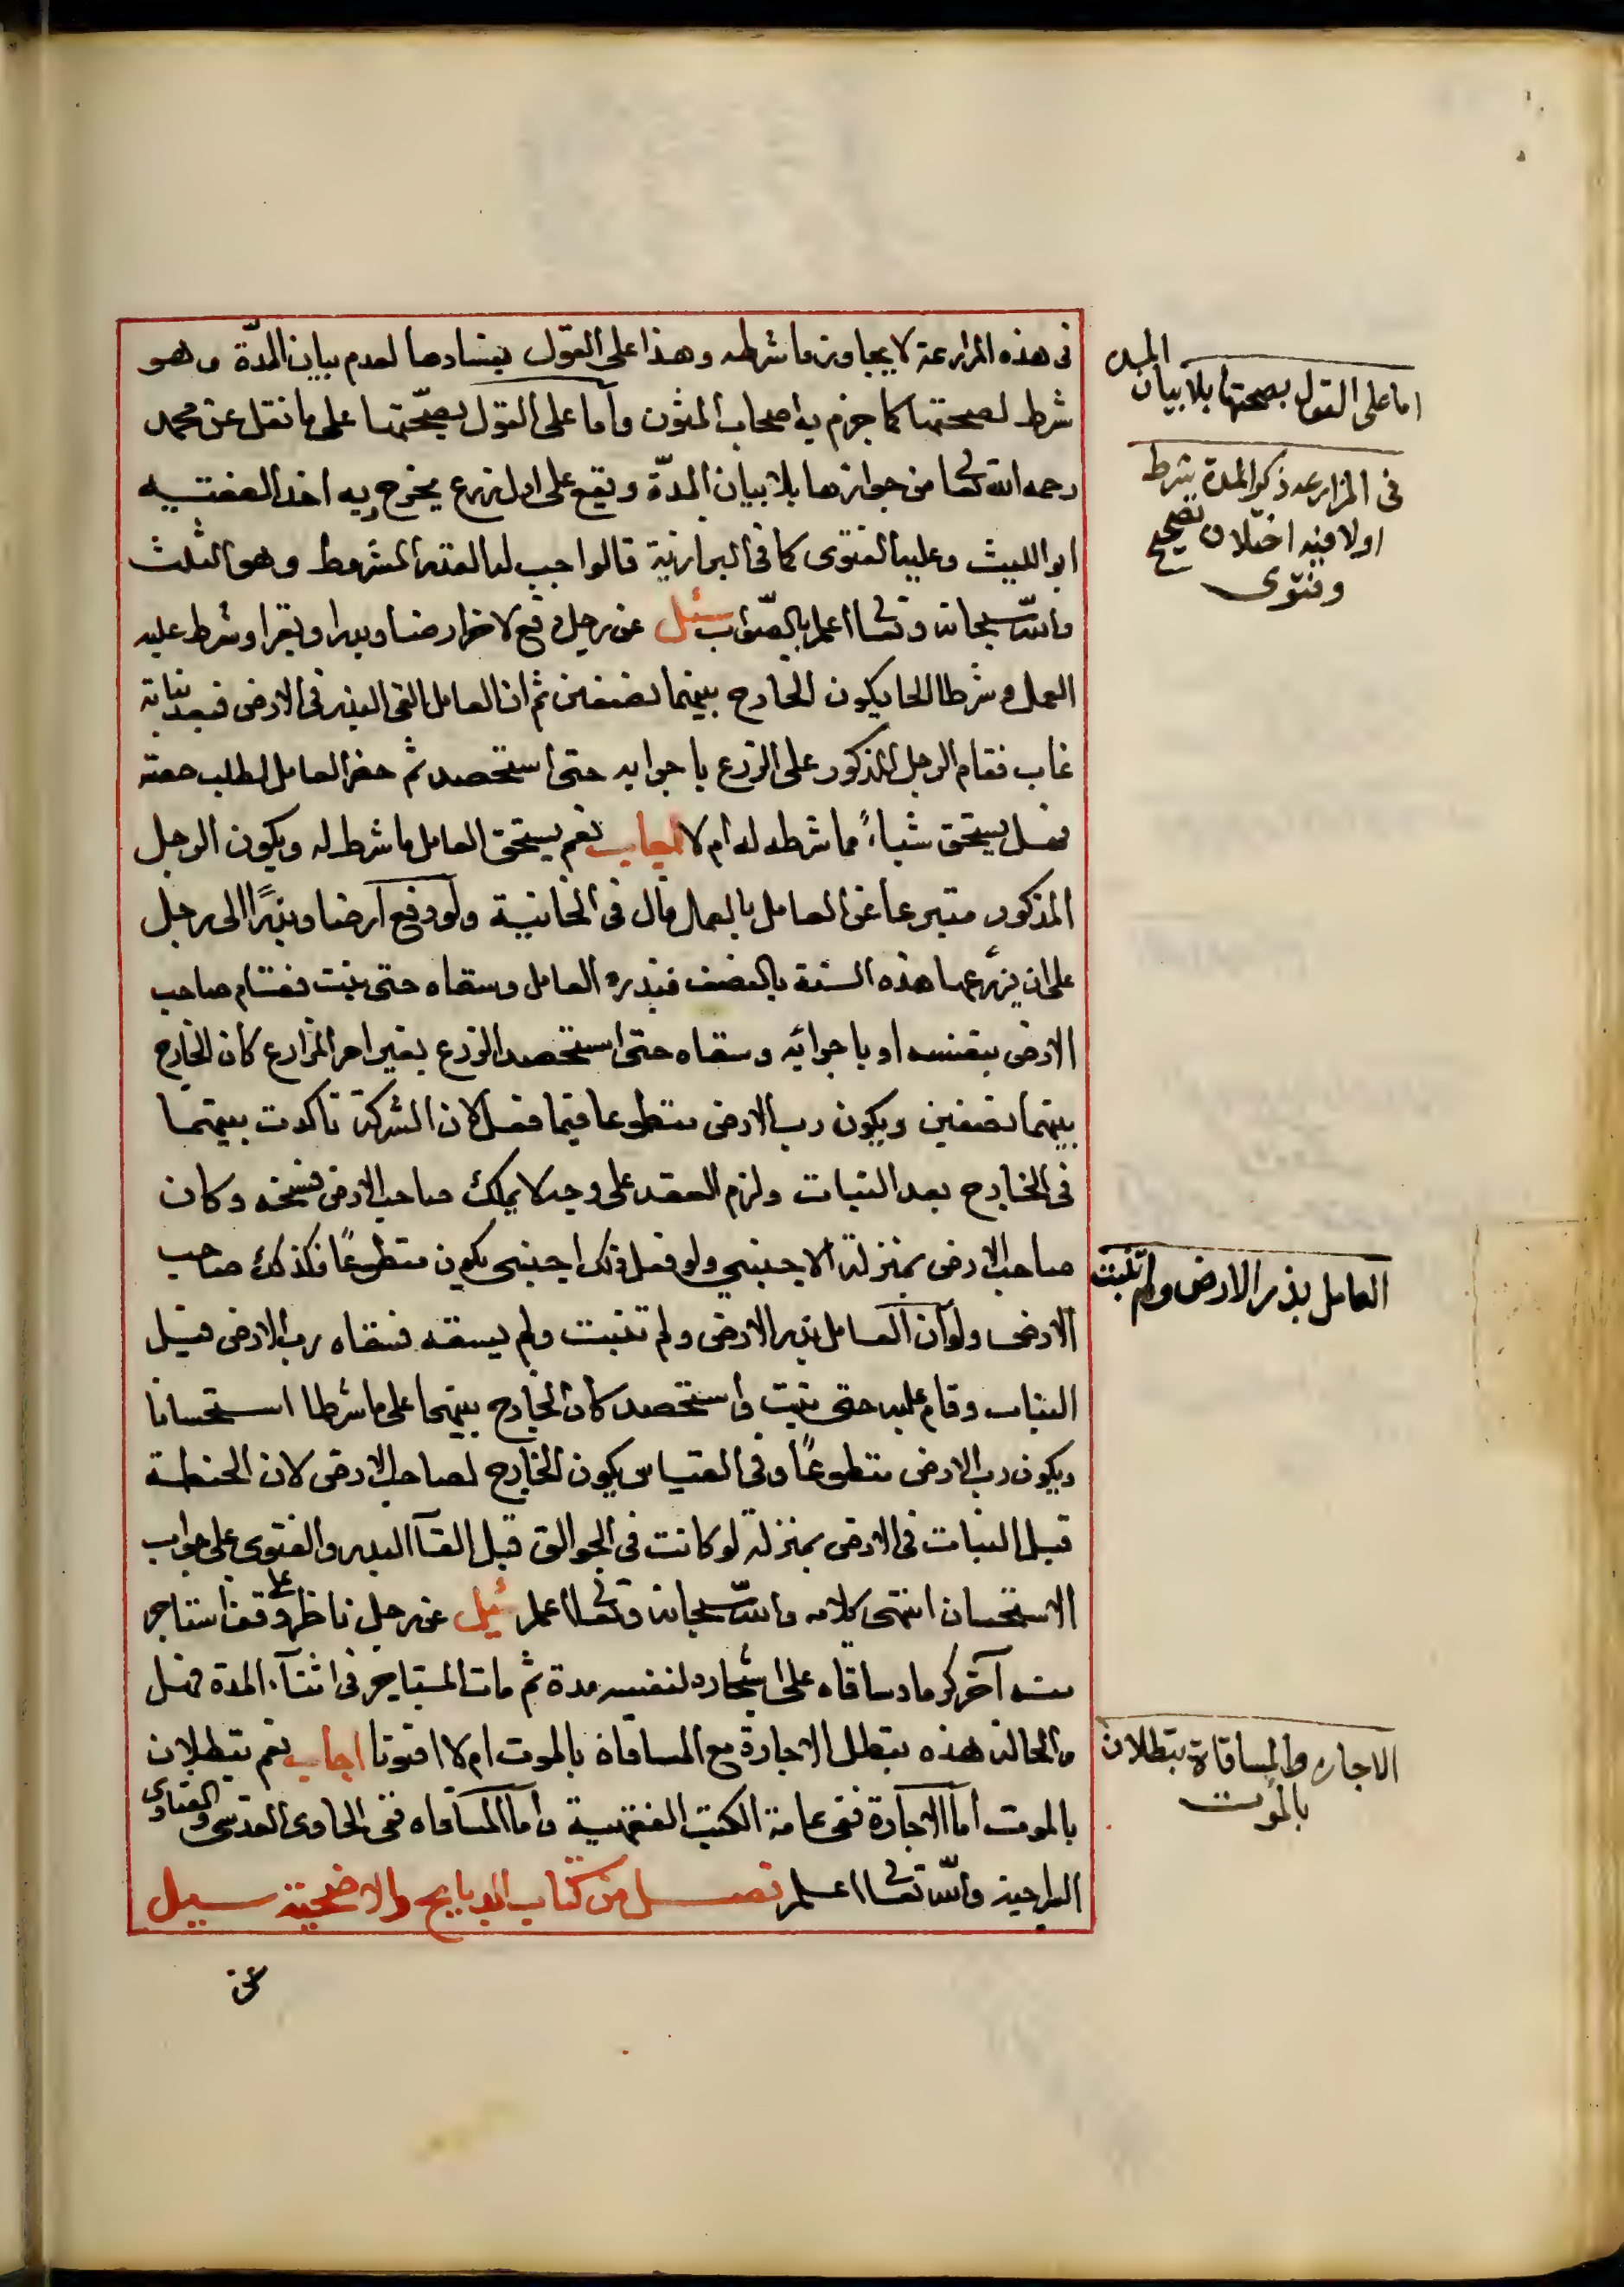 فى هذه المزارعة لا يجاوز ما شرطه وهذا على القول بفسادها لعدم بيان المدّة وهو
شرط لصحتها كما جزم به اصحاب المتون وأما على القول بصحّتها على ما نقل عن محمد
رحمه الله تعا من جوازها بلا بيان المدّة ويقع على اول زرع يخرج وبه اخذ الفقيه
ابو الليث وعليه الفتوى كما فى البزازية فالواجب له القدر المشروط وهو الثلث
والله سبحانه وتعا اعلم بالصّواب سئل عن رجل دفع لاخر ارضا وبذرا وبقرا وشرط عليه
العمل وشرطا الحا يكون الخارج بينهما نصفين ثم ان العامل القى البذر فى الارض فبعد نباته
غاب فقام الرجل المذكور على الزرع باجرايه حتى استحصد ثم حضر العامل لطلب حصته
فهل يستحق شياءً مما شرطه له ام لا اجاب نعم يستحق العامل ما شرط له ويكون الرجل
المذكور متبرعا عن العامل بالعمل قال فى الخانية ولو دفع ارضا وبذرًا الى رجل
على ان يزرعها هذه السنة بالنصف فبذره العامل وسقاه حتى نبت فقام صاحب
الارض بنفسه او باجرائه وسقاه حتى استحصد الزرع بغير امر المزارع كان الخارج
بينهما نصفين ويكون رب الارض متطوعا فيما فعل لان الشركة تاكدت بينهما
فى الخارج بعد النبات ولزم العقد على وجه لا يملك صاحب الارض فسخه وكان
صاحب الارض بمنزلة الاجنبي ولو فعل ذلك اجنبى يكون متطوعًا فكذلك صاحب
الارض ولو أن العامل بذر الارض ولم تنبت ولم يسقه فسقاه رب الارض قبل
النبات وقام عليه حتى نبت واستحصد كان الخارج بينهما على ما شرطا استحسانا
ويكون رب الارض متطوعًا وفى القياس يكون الخارج لصاحب الارض لان الحنطة
قبل النبات فى الارض بمنزلة لو كانت فى الجوالق قبل القآ البذر والفتوى على جواب
الاستحسان انتهى كلامه والله سبحانه وتعا اعلم سئل عن رجل ناظر على وقف استاجر
منه آخر كرما وساقاه على اشجاره لنفسه مدة ثم مات المستاجر فى اثنآء المدة فهل
والحالة هذه تبطل الاجارة مع المساقاة بالموت ام لا افتونا اجاب نعم تبطلان
بالموت أما الاجارة ففى عامة الكتب الفقهية وأما المساقاه ففى الحاوى القدسى والفتاوى
السراجية والله تعا اعلم فصل من كتاب الذبايح والاضحية سيل
عن
اما على القول بصحتها بلا بيان المدة
فى المزارعه ذكر المدة شرط
اولا فيه اختلاف تصحيح
وفتوى
العامل بذر الارض ولم تنبت
الاجاره والمساقاة تبطلان
بالموت